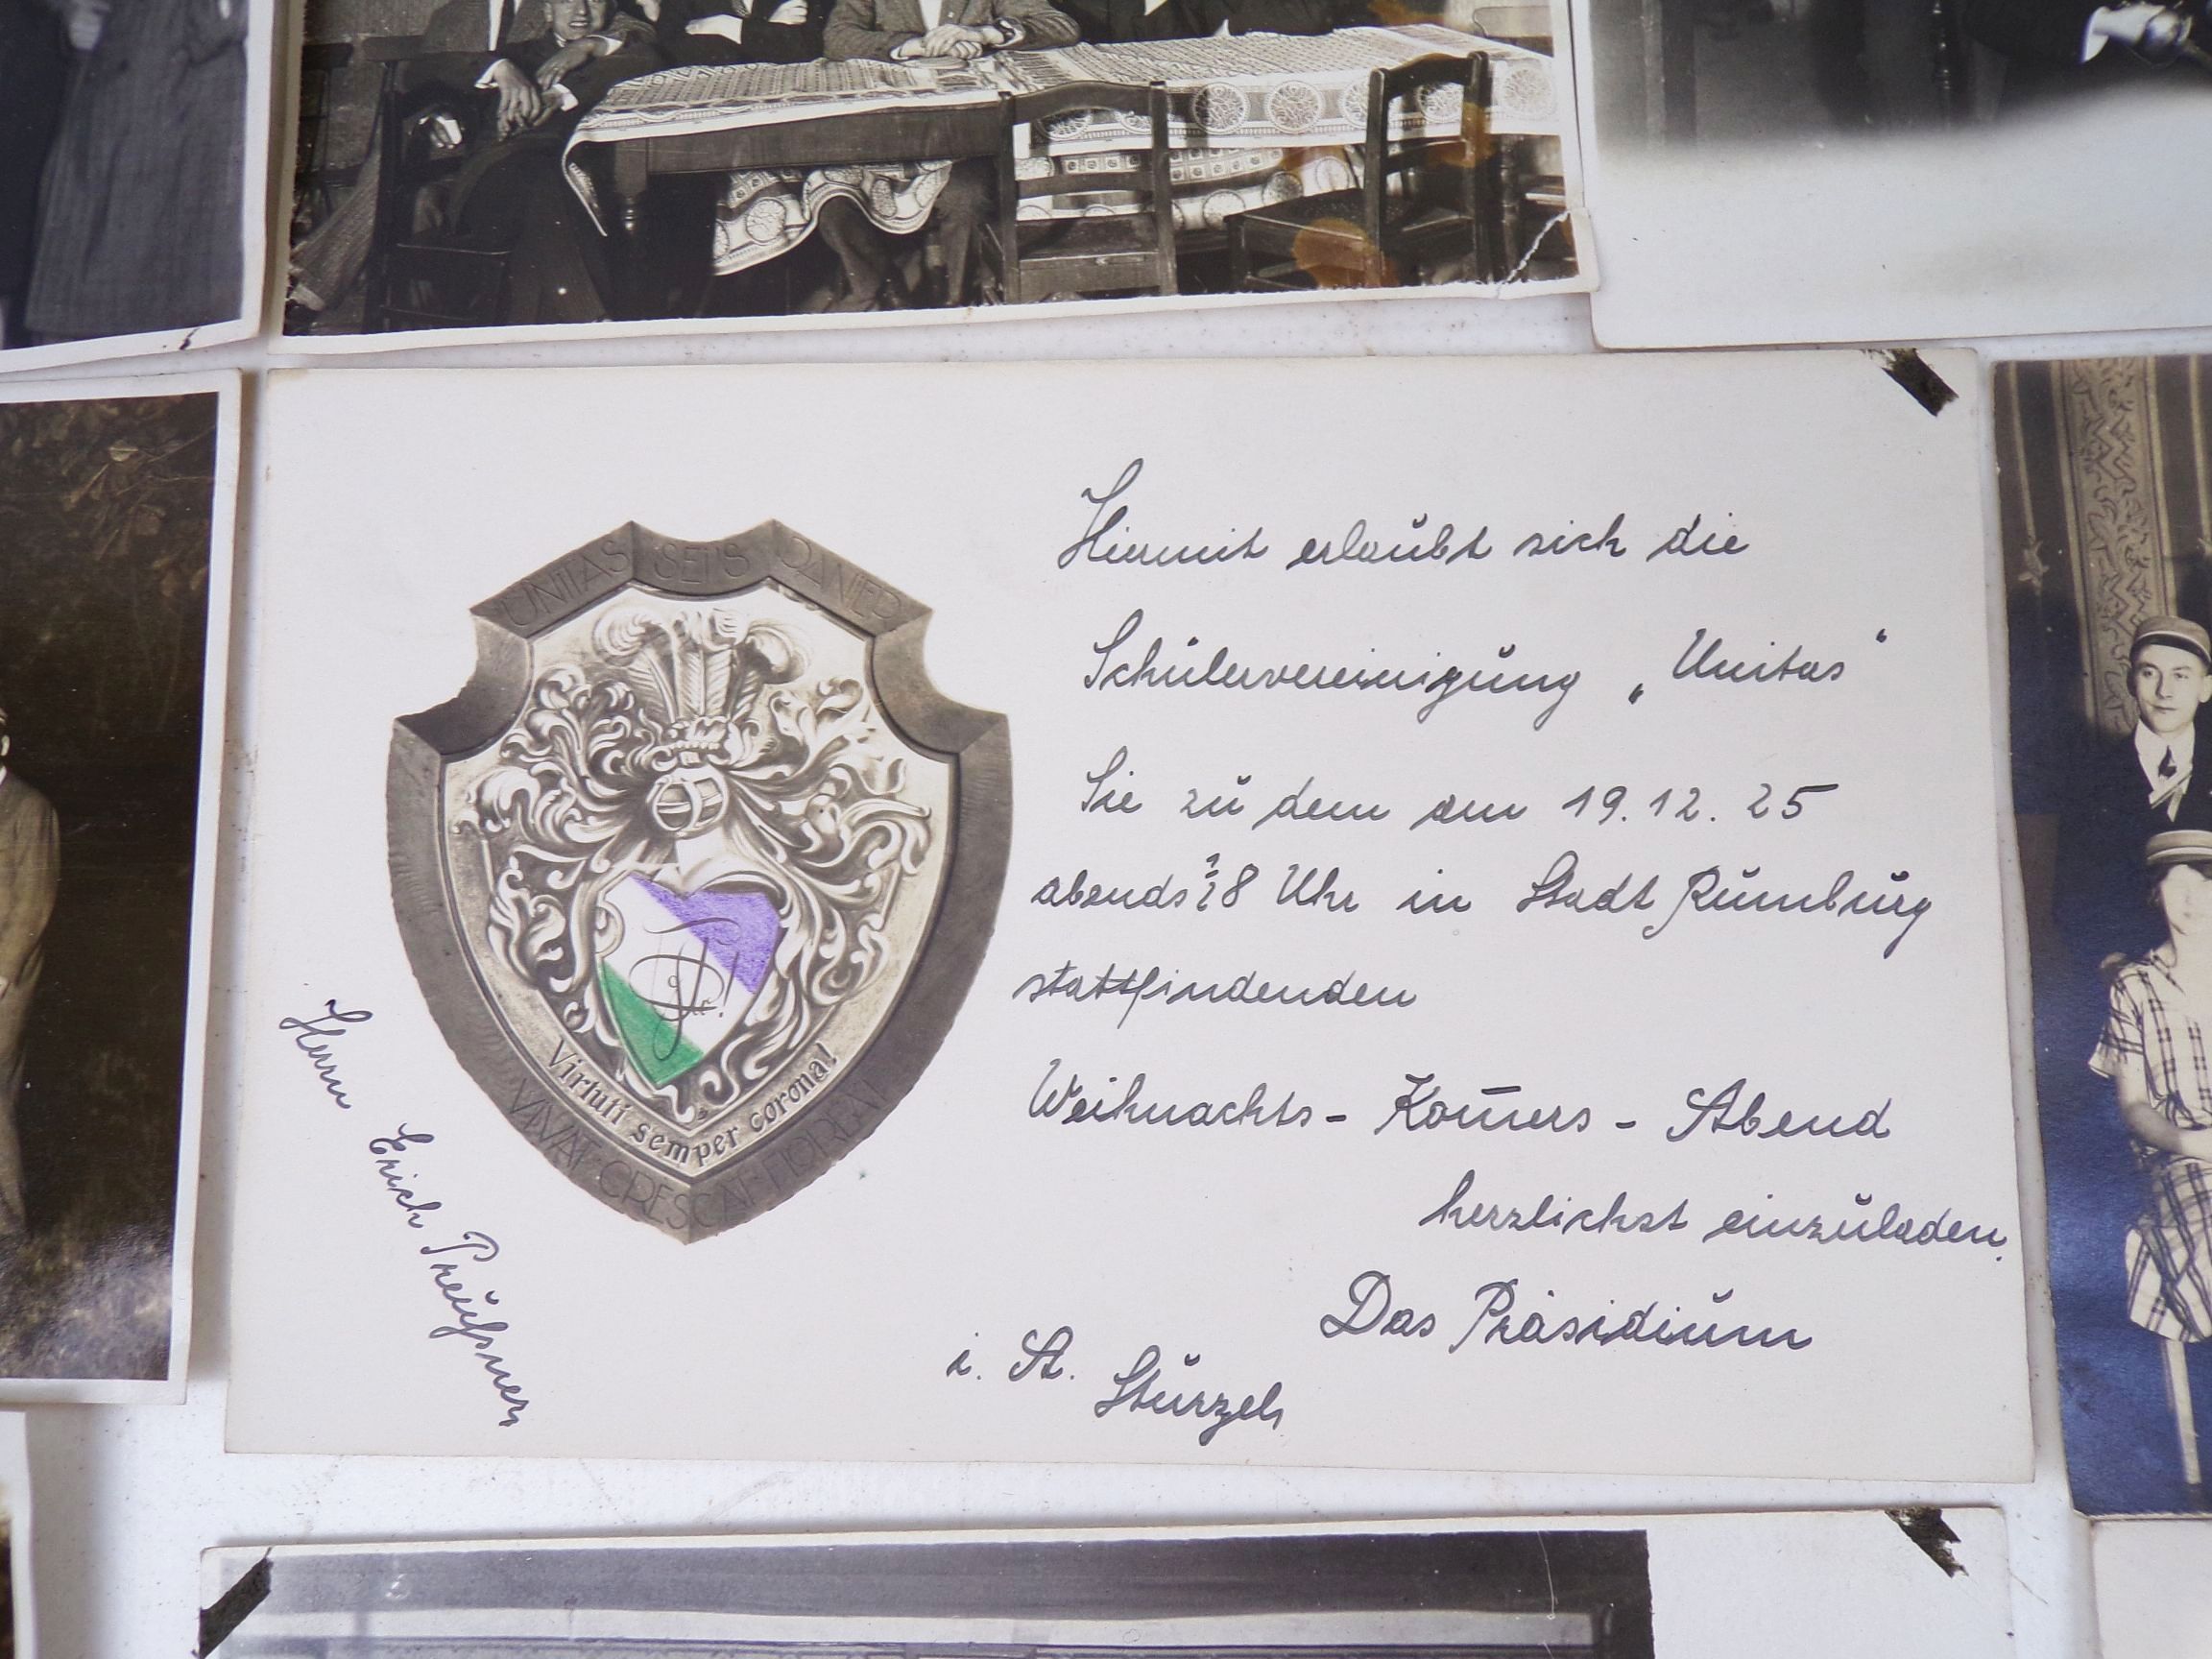 UNITAS SEI'S PANIER
Virtuti semper corona!
VIVAT CRESCAT FLOREAT
Hiermit erlaubt sich die
Schülervereinigung „Unitas“
Sie zu dem am 19.12.25
abends ½8 Uhr in Stadt Rumburg
stattfindenden
Weihnachts-Kom̅ers-Abend
herzlichst einzuladen.
Das Präsidium
i. A. Stürzel
Herrn Erich Preußner